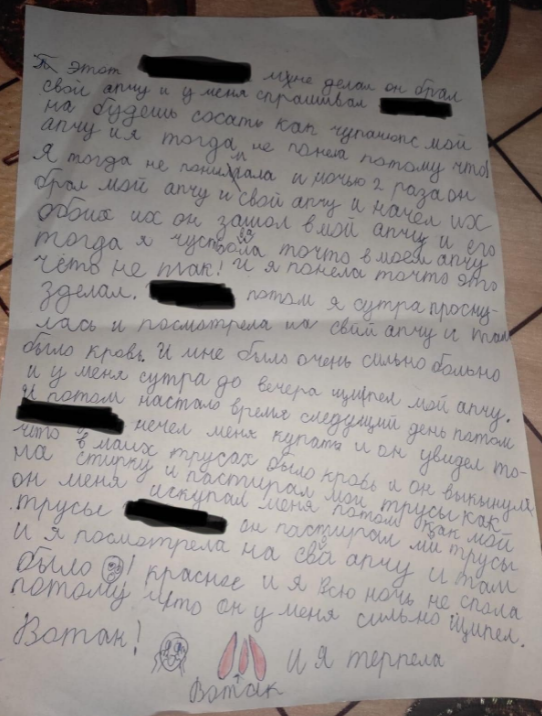 Этот мне делал он брал
свой апчу и у меня спрашивал
на будешь сосать как чупачюпс мой
апчу и я тогда не понела потому что
Я тогда не понимала и ночью 2 раза он
брал мой апчу и свой апчу и начел их
обоих их он зашол в мой апчу и его
тогда я чуствовала точто в моем апчу
чёто не так! И я понела точто это
зделал. потом я сутра просну-
лась и посмотрела на свой апчу и там
было кровь. И мне было очень сильно больно
и у меня сутра до вечера щипел мой апчу.
И потом настало время следущий день потом
нечел меня купать и он увидел то-
что в маих трусах было кровь и он выкынул
на стирку и пастирал мои трусы как
он меня искупал меня потом как мой
трусы он пастирал мои трусы
и я посмотрела на сва апчу и там
было ! красное и я всю ночь не спала
потому что он у меня сильно щипел.
Вотак! И я терпела
Вотак